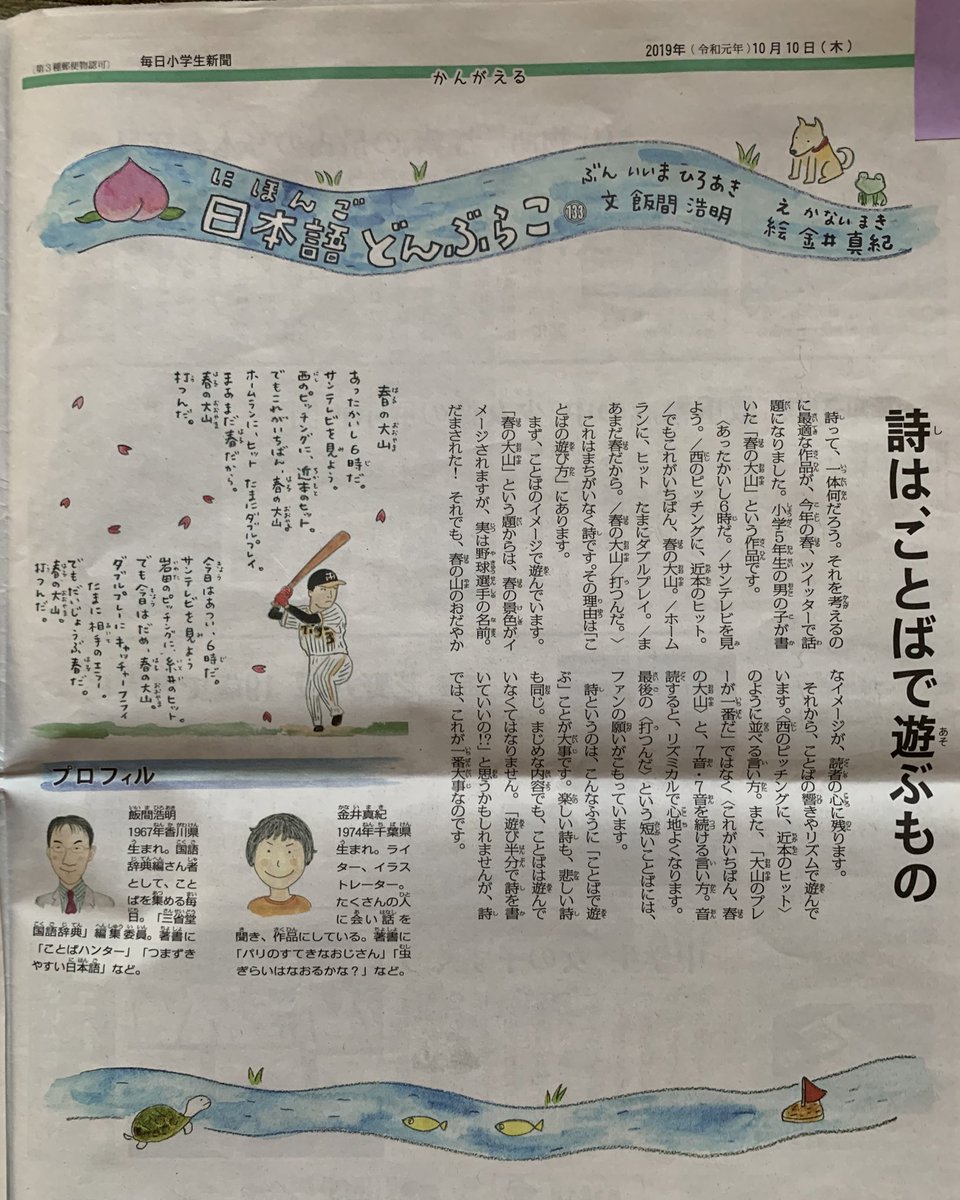 〔第3種郵便物認可〕
毎日小学生新聞
2019年(令和元年)10月10日(木)
かんがえる
にほんご
日本語どんぶらこ 133
ぶん いいま ひろあき
文 飯間 浩明
え かない まき
絵 金井 真紀
詩は、ことばで遊ぶもの
詩って、一体何だろう。それを考えるの
に最適な作品が、今年の春、ツイッターで話
題になりました。小学5年生の男の子が書
いた「春の大山」という作品です。
〈あったかいし6時だ。/サンテレビを見
よう。/西のピッチングに、近本のヒット。
/でもこれがいちばん、春の大山。/ホーム
ランに、ヒット たまにダブルプレイ。/ま
あまだ春だから。/春の大山/打つんだ。〉
これはまちがいなく詩です。その理由は「こ
とばの遊び方」にあります。
まず、ことばのイメージで遊んでいます。
「春の大山」という題からは、春の景色がイ
メージされますが、実は野球選手の名前。
だまされた! それでも、春の山のおだやか
なイメージが、読者の心に残ります。
それから、ことばの響きやリズムで遊んで
います。〈西のピッチングに、近本のヒット〉
のように並べる言い方。また、「大山のプレ
ーが一番だ」ではなく〈これがいちばん、春
の大山〉と、7音・7音を続ける言い方。音
読すると、リズミカルで心地よくなります。
最後の〈打つんだ〉という短いことばには、
ファンの願いがこもっています。
詩というのは、こんなふうに「ことばで遊
ぶ」ことが大事です。楽しい詩も、悲しい詩
も同じ。まじめな内容でも、ことばは遊んで
いなくてはなりません。「遊び半分で詩を書
いていいの!?」と思うかもしれませんが、詩
では、これが一番大事なのです。
春の大山
あったかいし6時だ。
サンテレビを見よう。
西のピッチングに、近本のヒット。
でもこれがいちばん、春の大山
ホームランに、ヒット たまにダブルプレイ。
まあまだ春だから。
春の大山
打つんだ。
今日はあつい、6時だ。
サンテレビを見よう
岩田のピッチングに、糸井のヒット。
でも今日はだめ、春の大山。
ダブルプレーにキャッチャーフライ
たまに相手のエラー。
でもだいじょうぶ春だ。
春の大山。
打つんだ。
プロフィル
飯間浩明
1967年香川県
生まれ。国語
辞典編さん者
として、こと
ばを集める毎
日。「三省堂
国語辞典」編集委員。著書に
「ことばハンター」「つまずき
やすい日本語」など。
金井真紀
1974年千葉県
生まれ。ライ
ター、イラス
トレーター。
たくさんの人
に会い話を
聞き、作品にしている。著書に
「パリのすてきなおじさん」「虫
ぎらいはなおるかな?」など。